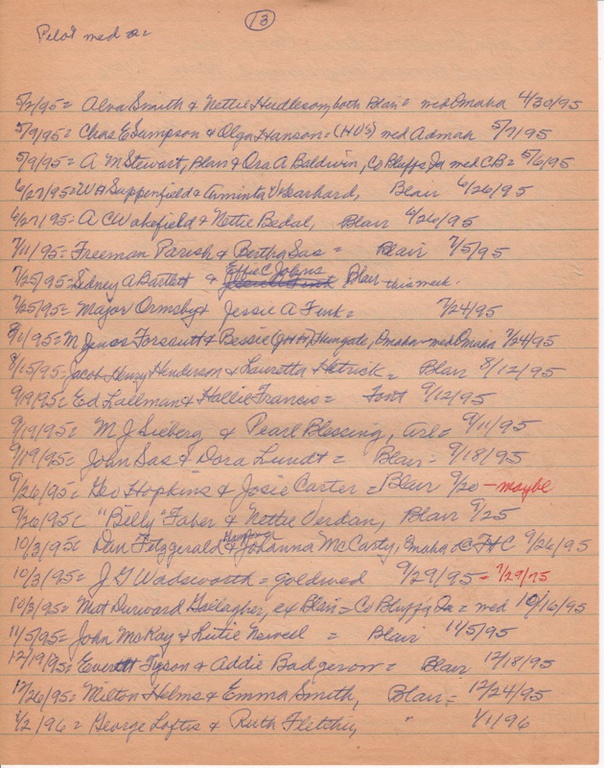 13
Pilot med a=
5/2/95= Alva Smith & Nettie Hudleson, both Blair= med Omaha 4/30/95
5/9/95= Chas E Simpson & Olga Hanson= (HUS) med Admah 5/7/95
5/9/95= A M Stewart, Blair & Ora A Baldwin, Co Bluffs Ia med CB= 5/6/95
6/27/95= W H Suppenfield & Arminta Gearhard, Blair 6/26/95
6/27/95= A C Wakefield & Nettie Bedal, Blair 6/26/95
7/11/95= Freeman Parish & Bertha Sas = Blair 7/5/95
7/25/95= Sidney A Bartlett & Effie C Johns Blair this week.
7/25/95= Major Ormsby & Jessie A Fink= 7/24/95
8/1/95= M Forscutt & Bessie Hungate, Omaha= med Omaha 7/24/95
8/15/95= Jacob Henry Henderson & Lauretta Hetrick= Blair 8/12/95
9/19/95= Ed Lallman & Hallie Francis= Font 9/12/95
9/19/95= M J Sieberg & Pearl Blessing, Arl= 9/11/95
9/19/95= John Sas & Dora Lundt= Blair= 9/18/95
9/26/95= Geo Hopkins & Josie Carter= Blair 9/20 - maybe
9/26/95= "Billy" Faber & Nettie Verdan, Blair 9/25
10/3/95= Dan Fitzgerald & Johanna McCarty, Omaha CTHC 9/26/95
10/3/95= J G Wadsworth= goldwed 9/29/95 = 9/29/75
10/8/95= Mut Durward Gallagher, ex Blair= Co Bluffs Ia= med 10/16/95
11/5/95= John McKay & Lutie Newell = Blair 11/5/95
12/19/95= Everett Tyson & Addie Badgerow= Blair 12/18/95
12/26/95= Milton Helms & Emma Smith, Blair= 12/24/95
1/2/96= George Loftis & Ruth Fletcher, " 1/1/96